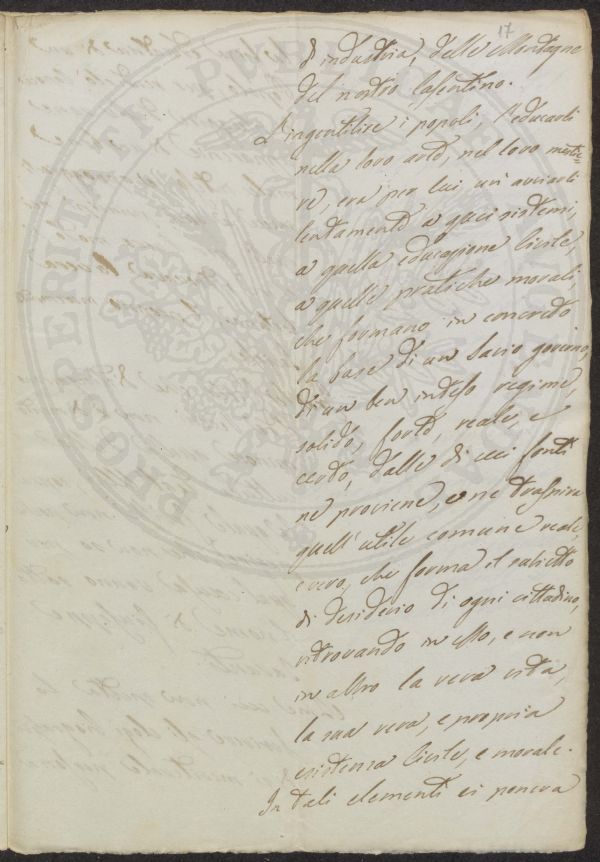 17
d'industria, delle Montagne
del nostro Casentino.
L'ingentilire i popoli, l'educarli
nella loro arte, nel loro mestie=
re, era per lui un avviarli
lentamente a quei sistemi,
a quella educazione Civile
a quelle pratiche morali,
che formano in concreto
la base di un Savio governo,
di un ben inteso regime,
solido, forte, reale, e
certo, dalle di cui fonti
ne proviene, e ne traspira
quell'utile comune reale,
e vero, che forma il subietto
di desiderio di ogni cittadino,
ritrovando in esso, e non
in altro la vera vita,
la sua vera, e propria
esistenza Civile, e morale.
In tali elementi ei poneva
PROSPERITATI PUBLICAE AUGENDAE